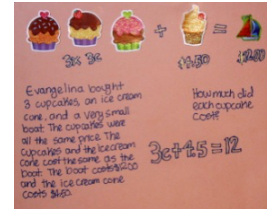 + =
3x 3c $4.50 $12.00
Evangelina bought
3 cupcakes, an ice cream
cone, and a very small
boat. The cupcakes were
all the same price. The
cupcakes and the icecream
cone cost the same as the
boat. The boat costs $12.00
and the ice cream cone
costs $4.50.
How much did
each cupcake
cost?
3c+4.5=12